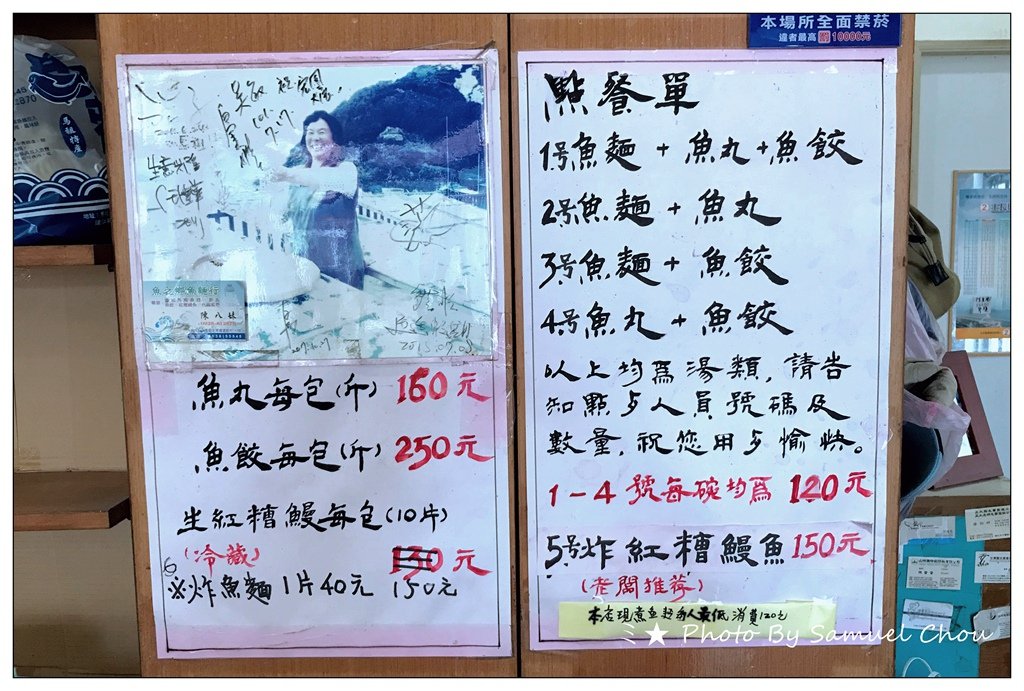 本場所全面禁菸
違者最高罰10000元
馬祖特產
陳八妹
魚丸每包(斤) 160元
魚餃每包(斤) 250元
生紅糟鰻每包(10片)
(冷藏)
元
※炸魚麵1片40元 150元
點餐單
1号魚麵 + 魚丸+魚餃
2号魚麵 + 魚丸
3号魚麵 + 魚餃
4号魚丸 + 魚餃
以上均爲湯類,請告
知點歺人員號碼及
數量,祝您用歺愉快。
1-4 號每碗均爲 120元
5号炸紅糟鰻魚150元
(老闆推荐)
最低消費120元
★ Photo By Samuel Chou